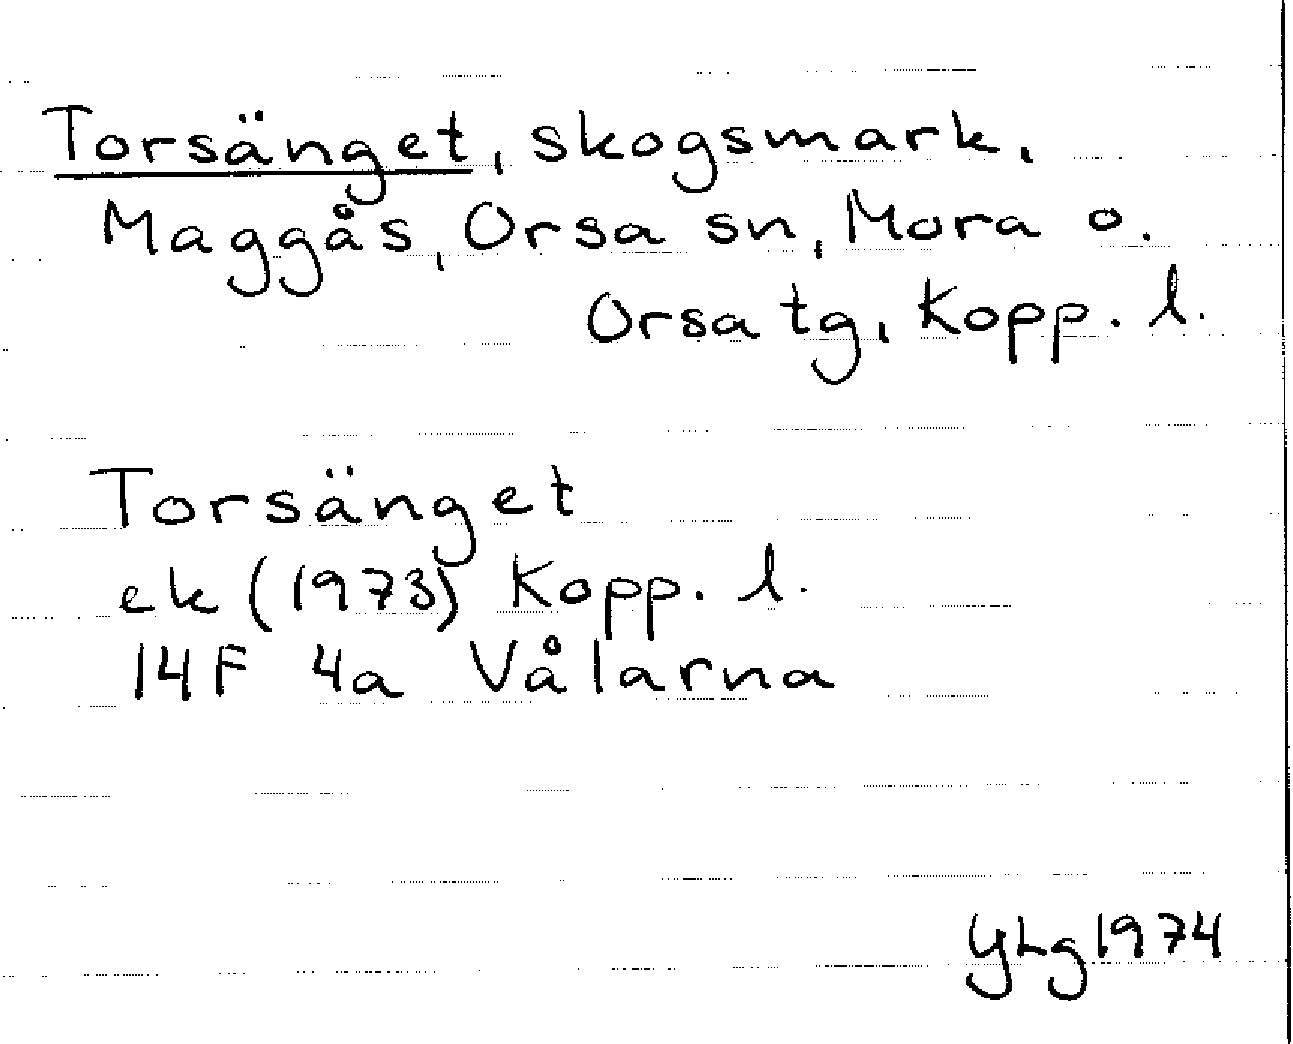 Torsänget, skogsmark,
Maggås, Orsa sn, Mora o.
Orsa tg, Kopp. l.
Torsänget
ek (1973) Kopp. l.
14F 4a Vålarna
YLg 1974